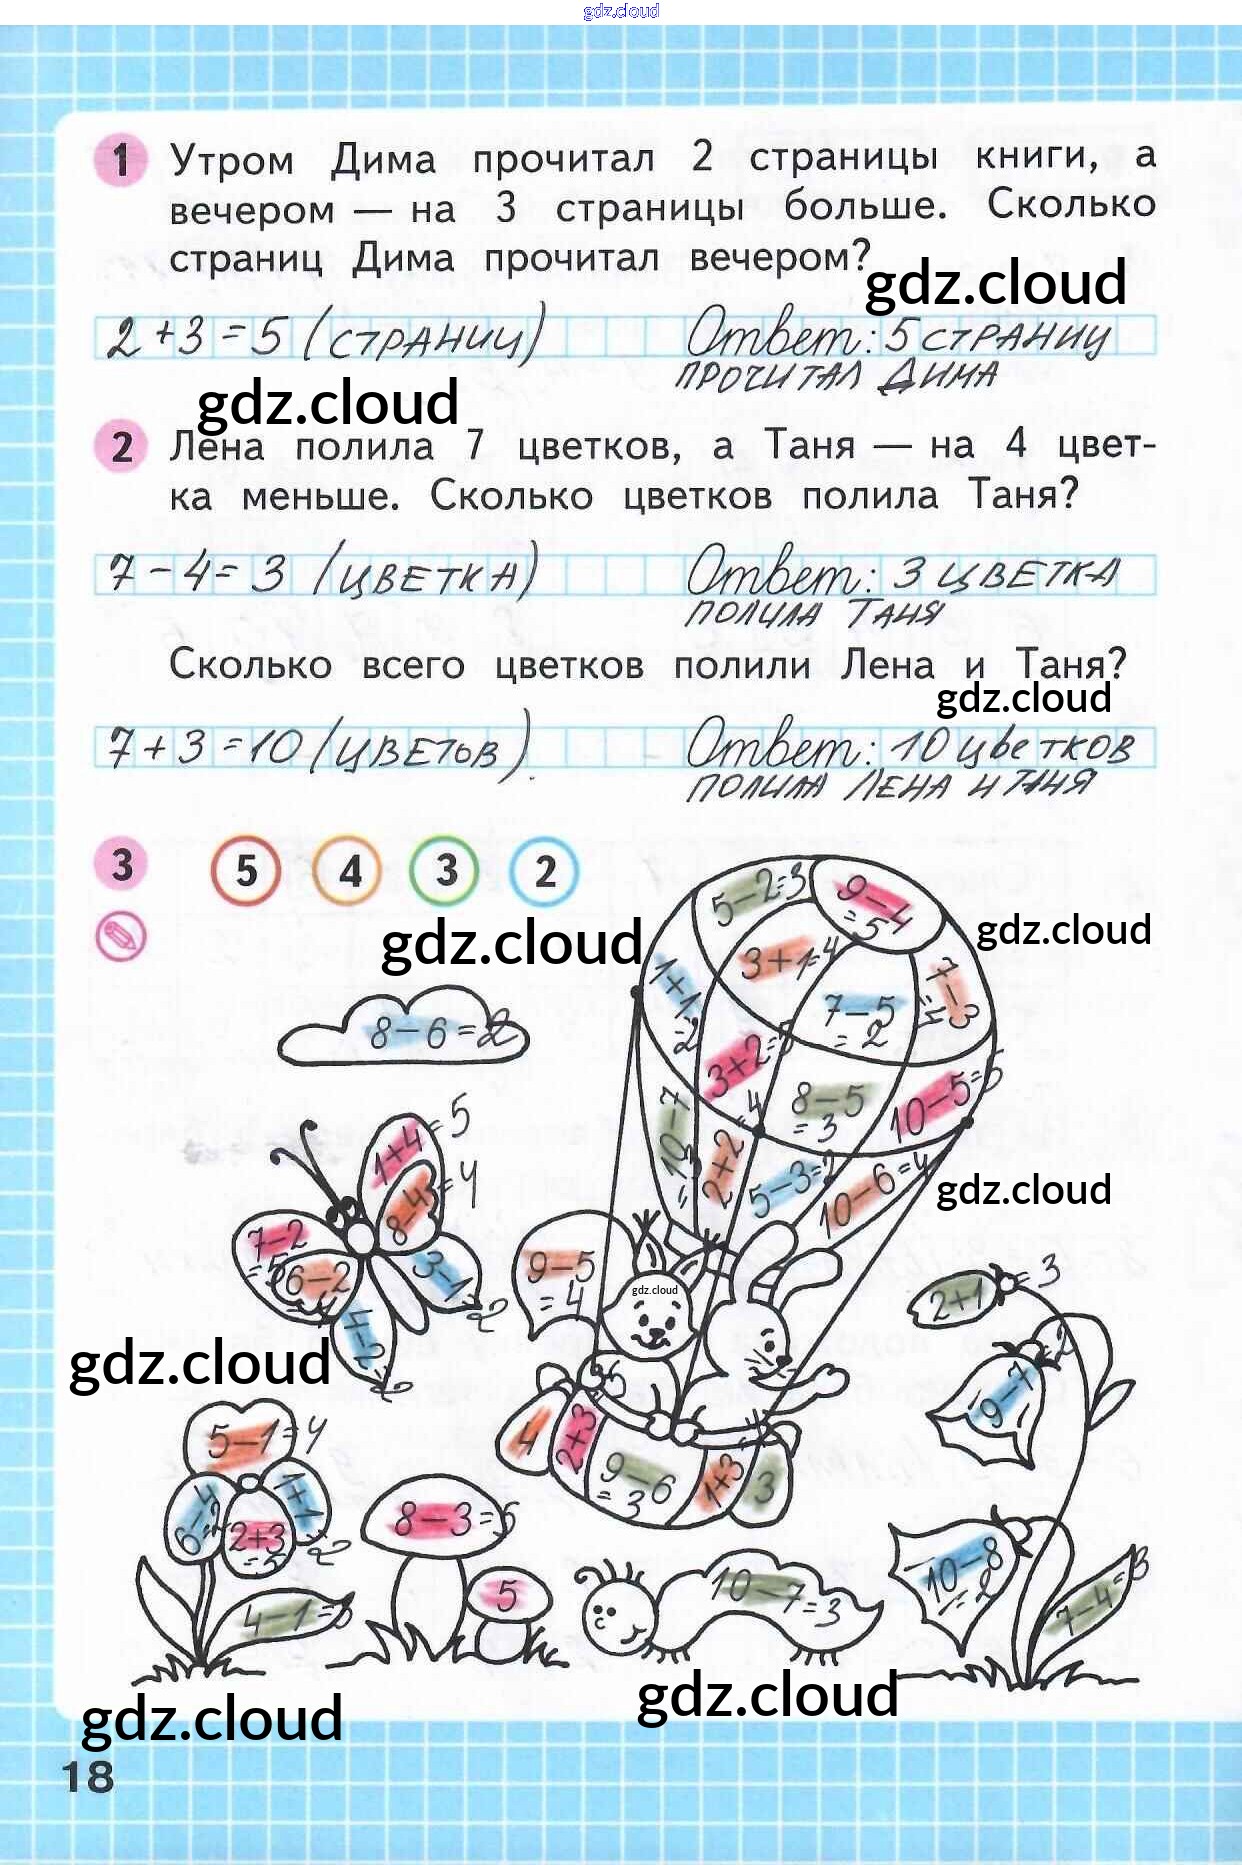 gdz.cloud
1 Утром Дима прочитал 2 страницы книги, а
вечером — на 3 страницы больше. Сколько
страниц Дима прочитал вечером?
gdz.cloud
2+3=5 (СТРАНИЦ) Ответ: 5 СТРАНИЦ
ПРОЧИТАЛ ДИМА
gdz.cloud
2 Лена полила 7 цветков, а Таня — на 4 цвет-
ка меньше. Сколько цветков полила Таня?
7-4=3 (ЦВЕТКА) Ответ: 3 ЦВЕТКА
ПОЛИЛА ТАНЯ
Сколько всего цветков полили Лена и Таня?
gdz.cloud
7+3=10 (ЦВЕТЬВ). Ответ: 10 ЦВЕТКОВ
ПОЛИЛА ЛЕНА И ТАНЯ
3 5 4 3 2
gdz.cloud
gdz.cloud
5-2=3
9-4
=5
1+1
=2
3+1=4
7-5
=2
7-3
=4
8-6=2
3+2=5
8-5
=3
10-5=5
10-7
=3
2+2=4
5-3=2
10-6=4
gdz.cloud
1+4=5
8-4=4
7-2
=5
6-2
3-1=2
4-2
2
9-5
=4
gdz.cloud
2+1=3
9-7=2
gdz.cloud
4
2+3
9-6
=36
1+3
3
5-1=4
6-4
=2
1+1
2
2+3
=5
4-1=3
8-3=5
5
10-7=3
10-8
=2
7-4=3
gdz.cloud
gdz.cloud
18